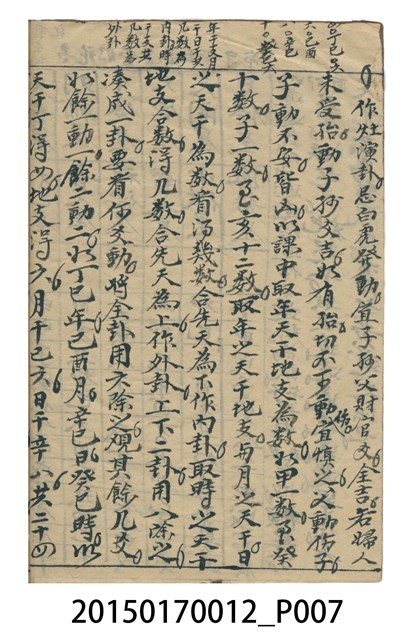 年干支月
干日干支
几數為
內卦時
干支其
几數為
外卦
丁巳
己酉
辛巳
癸巳
作灶演卦忌白虎發動宜子孫父財官文全吉若婦人
未受胎動子孫文吉如有胎切不可動宜慎之父動傷子
子動不安皆凶以課中取年天干地支為數如甲一數至癸
十數子一數至亥十二數取年之天干地支与月之天干日
之天干為數看得幾數合先天為下作內卦取時之天干
地支合數得几數合先天為上作外卦上下二卦用八除之
湊成一卦要看何爻動將全卦用六除之觀其餘几爻
如餘一動一餘二動二如丁巳年己酉月辛巳日癸巳時以
天干丁得四地支得六月干己六日干辛八共二十四
20150170012_P007